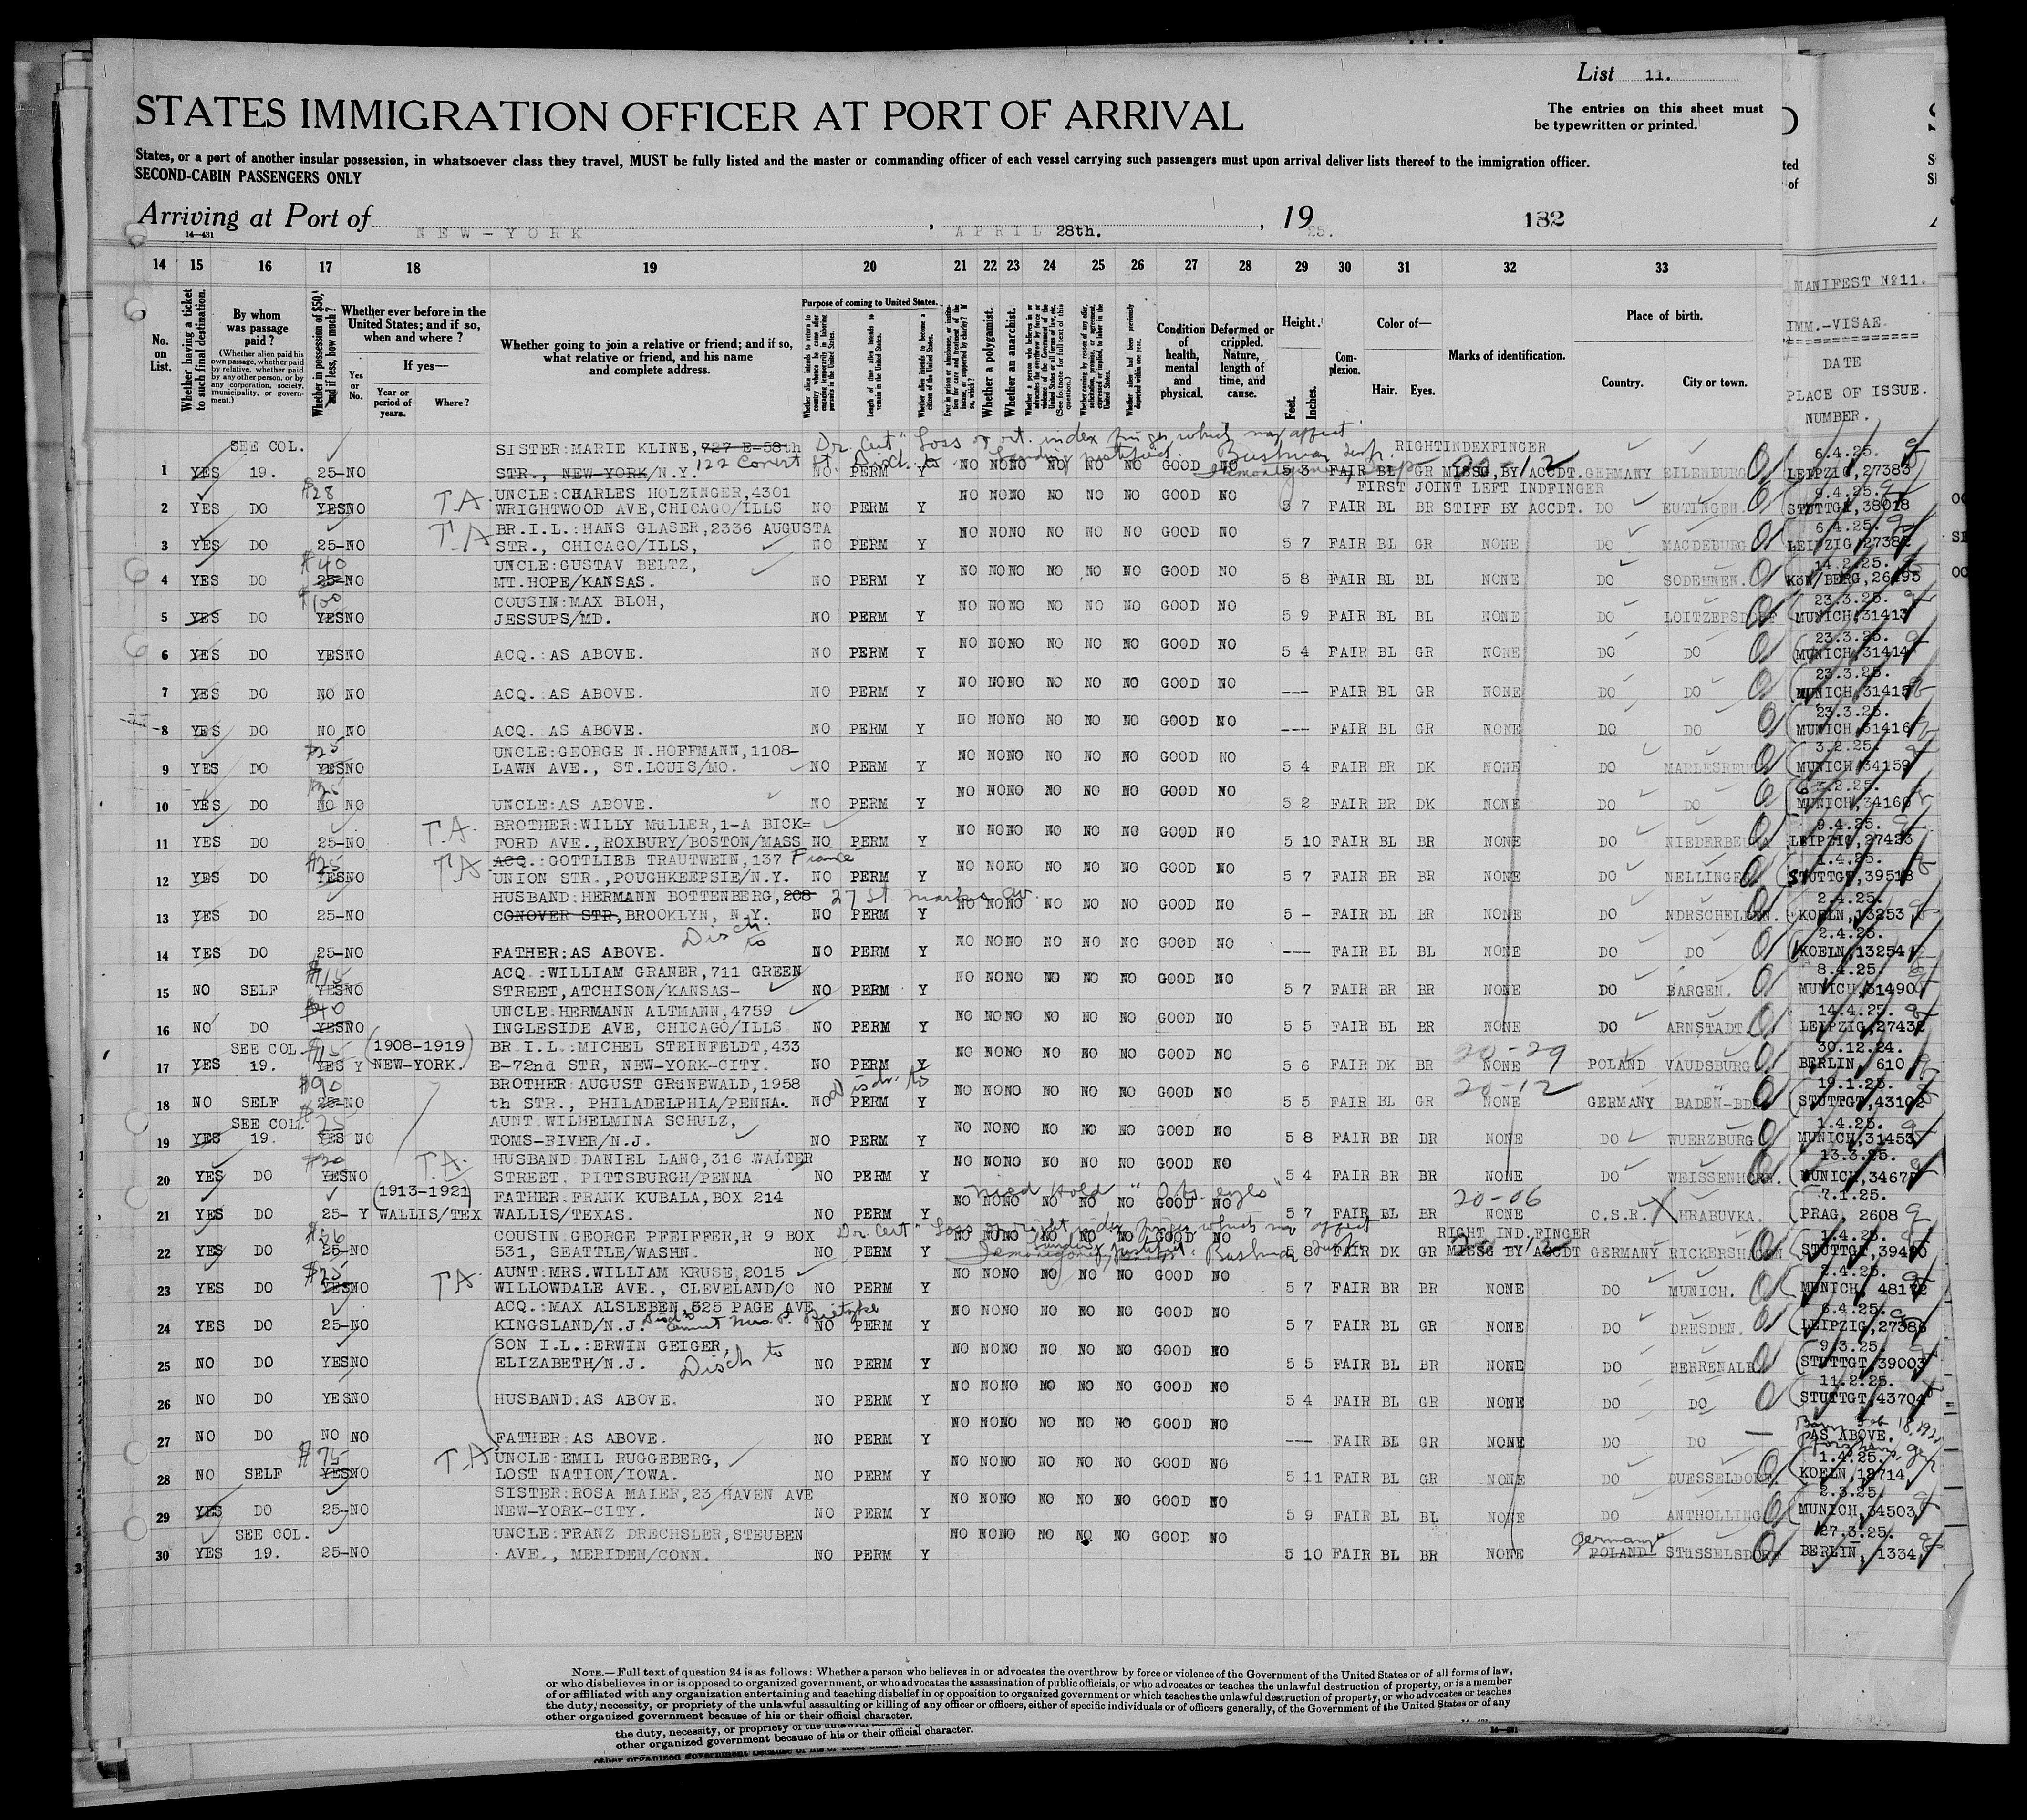 List 11.
STATES IMMIGRATION OFFICER AT PORT OF ARRIVAL
The entries on this sheet must
be typewritten or printed.
States, or a port of another insular possession, in whatsoever class they travel, MUST be fully listed and the master or commanding officer of each vessel carrying such passengers must upon arrival deliver lists thereof to the immigration officer.
SECOND-CABIN PASSENGERS ONLY
Arriving at Port of NEW-YORK, APRIL 28th., 1925.
182
14—431
14 15 16 17 18 19 20 21 22 23 24 25 26 27 28 29 30 31 32 33
MANIFEST Nº11.
IMM.-VISAE.
DATE
PLACE OF ISSUE.
NUMBER.
No. on List.
Whether having a ticket to such final destination.
By whom was passage paid?
(Whether alien paid his own passage, whether paid by relative, whether paid by any other person, or by any corporation, society, municipality, or government.)
Whether in possession of $50, and if less, how much?
Whether ever before in the United States; and if so, when and where?
Yes or No.
If yes—
Year or period of years.
Where?
Whether going to join a relative or friend; and if so, what relative or friend, and his name and complete address.
Purpose of coming to United States.
Whether a polygamist.
Whether an anarchist.
Condition of health, mental and physical.
Deformed or crippled. Nature, length of time, and cause.
Height.
Feet. Inches.
Complexion.
Color of—
Hair. Eyes.
Marks of identification.
Place of birth.
Country. City or town.
SEE COL. SISTER:MARIE KLINE, 727 E-58th Dr. Cert "Loss of rt. index finger, which may affect RIGHTINDEXFINGER 6.4.25.
1 YES 19. 25-NO STR., NEW-YORK/N.Y. 122 Covert St. Disch. to NO PERM Y NO NO NO NO NO NO GOOD NO 5 3 FAIR BL GR MISSG.BY ACCDT. 20-12 GERMANY EILENBURG LEIPZIG, 27383
$28 T.A UNCLE:CHARLES HOLZINGER,4301 FIRST JOINT LEFT INDFINGER 9.4.25.
2 YES DO YESNO WRIGHTWOOD AVE,CHICAGO/ILLS NO PERM Y NO NO NO NO NO NO GOOD NO 5 7 FAIR BL BR STIFF BY ACCDT. DO EUTINGEN. STUTTGT,38018
T.A BR.I.L.:HANS GLASER,2336 AUGUSTA 6.4.25.
3 YES DO 25-NO STR., CHICAGO/ILLS, NO PERM Y NO NO NO NO NO NO GOOD NO 5 7 FAIR BL GR NONE DO MAGDEBURG LEIPZIG,27382
$40 UNCLE:GUSTAV BELTZ, 14.2.25.
4 YES DO 25-NO MT.HOPE/KANSAS. NO PERM Y NO NO NO NO NO NO GOOD NO 5 8 FAIR BL BL NONE DO SODEHNEN. KöN/BERG,26495
$100 COUSIN:MAX BLOH, 23.3.25.
5 YES DO YESNO JESSUPS/MD. NO PERM Y NO NO NO NO NO NO GOOD NO 5 9 FAIR BL BL NONE DO LOITZERSDORF MUNICH,31413
23.3.25.
6 YES DO YESNO ACQ.:AS ABOVE. NO PERM Y NO NO NO NO NO NO GOOD NO 5 4 FAIR BL GR NONE DO DO MUNICH,31414
23.3.25.
7 YES DO NO NO ACQ. AS ABOVE. NO PERM Y NO NO NO NO NO NO GOOD NO --- FAIR BL GR NONE DO DO MUNICH,31415
23.3.25.
8 YES DO NO NO ACQ. AS ABOVE. NO PERM Y NO NO NO NO NO NO GOOD NO --- FAIR BL GR NONE DO DO MUNICH,31416
$25 UNCLE:GEORGE N.HOFFMANN,1108- 3.2.25.
9 YES DO YESNO LAWN AVE., ST.LOUIS/MO. NO PERM Y NO NO NO NO NO NO GOOD NO 5 4 FAIR BR DK NONE DO MUNICH,34159
$25 3.2.25.
10 YES DO NO NO UNCLE:AS ABOVE. NO PERM Y NO NO NO NO NO NO GOOD NO 5 2 FAIR BR DK NONE DO DO MUNICH,34160
T.A. BROTHER:WILLY MüLLER,1-A BICK= 9.4.25.
11 YES DO 25-NO FORD AVE.,ROXBURY/BOSTON/MASS NO PERM Y NO NO NO NO NO NO GOOD NO 5 10 FAIR BL BR NONE DO LEIPZIG,27423
$25 T.A ACQ.:GOTTLIEB TRAUTWEIN,137 Fiance 1.4.25.
12 YES DO YESNO UNION STR.,POUGHKEEPSIE/N.Y. NO PERM Y NO NO NO NO NO NO GOOD NO 5 7 FAIR BR BR NONE DO NELLINGEN STUTTGT,39518
HUSBAND:HERMANN BOTTENBERG,208 27 St. Marks Av. 2.4.25.
13 YES DO 25-NO CONOVER STR,BROOKLYN, N.Y. NO PERM Y NO NO NO NO NO NO GOOD NO 5 - FAIR BL BR NONE DO NDRSCHELDEN. KOELN,13253
Disch. to 2.4.25.
14 YES DO 25-NO FATHER:AS ABOVE. NO PERM Y NO NO NO NO NO NO GOOD NO --- FAIR BL BL NONE DO DO KOELN,13254
$15 ACQ.:WILLIAM GRANER,711 GREEN 8.4.25.
15 NO SELF YESNO STREET,ATCHISON/KANSAS- NO PERM Y NO NO NO NO NO NO GOOD NO 5 7 FAIR BR BR NONE DO BARGEN. MUNICH,31490
$40 UNCLE:HERMANN ALTMANN,4759 14.4.25.
16 NO DO YESNO INGLESIDE AVE, CHICAGO/ILLS NO PERM Y NO NO NO NO NO NO GOOD NO 5 5 FAIR BL BR NONE DO ARNSTADT. LEIPZIG,27432
SEE COL. $15 (1908-1919) BR.I.L.:MICHEL STEINFELDT,433 30.12.24.
17 YES 19. YES Y NEW-YORK. E-72nd STR, NEW-YORK-CITY. NO PERM Y NO NO NO NO NO NO GOOD NO 5 6 FAIR DK BR 20-29 NONE POLAND VAUDSBURG BERLIN, 610
$90 BROTHER:AUGUST GRüNEWALD,1958 Disch. to 19.1.25.
18 NO SELF 25-NO th STR., PHILADELPHIA/PENNA. NO PERM Y NO NO NO NO NO NO GOOD NO 5 5 FAIR BL GR 20-12 NONE GERMANY BADEN-BDN STUTTGT,43102
SEE COL. $25 AUNT:WILHELMINA SCHULZ, 1.4.25.
19 YES 19. YES NO TOMS-RIVER/N.J. NO PERM Y NO NO NO NO NO NO GOOD NO 5 8 FAIR BR BR NONE DO WUERZBURG MUNICH,31453
$20 T.A. HUSBAND:DANIEL LANG,316 WALTER 13.3.25.
20 YES DO YESNO STREET. PITTSBURGH/PENNA NO PERM Y NO NO NO NO NO NO GOOD NO 5 4 FAIR BR BR NONE DO WEISSENHORN. MUNICH,34675
(1913-1921) FATHER:FRANK KUBALA,BOX 214 Med Hold 7.1.25.
21 YES DO 25- Y WALLIS/TEX WALLIS/TEXAS. NO PERM Y NO NO NO NO NO NO GOOD NO 5 7 FAIR BL BR 20-06 NONE C.S.R. HRABUVKA. PRAG, 2608
$56 COUSIN:GEORGE PFEIFFER,R 9 BOX Dr. Cert "Loss of right index finger which may affect RIGHT IND.FINGER 1.4.25.
22 YES DO 25-NO 531, SEATTLE/WASHN. NO PERM Y NO NO NO NO NO NO GOOD NO 5 8 FAIR DK GR MISSG BY ACCDT GERMANY RICKERSHAGEN STUTTGT,39470
$25 T.A. AUNT:MRS.WILLIAM KRUSE,2015 2.4.25.
23 YES DO YESNO WILLOWDALE AVE., CLEVELAND/O NO PERM Y NO NO NO NO NO NO GOOD NO 5 7 FAIR BR BR NONE DO MUNICH. MUNICH, 48172
ACQ.:MAX ALSLEBEN,525 PAGE AVE 6.4.25.
24 YES DO 25-NO KINGSLAND/N.J. Disch to aunt Mrs. P. NO PERM Y NO NO NO NO NO NO GOOD NO 5 7 FAIR BL GR NONE DO DRESDEN. LEIPZIG,27386
SON I.L.:ERWIN GEIGER, 9.3.25.
25 NO DO YESNO ELIZABETH/N.J. Disch to NO PERM Y NO NO NO NO NO NO GOOD NO 5 5 FAIR BL BR NONE DO HERRENALB STUTTGT,39003
11.2.25.
26 NO DO YESNO HUSBAND:AS ABOVE. NO PERM Y NO NO NO NO NO NO GOOD NO 5 4 FAIR BL GR NONE DO DO STUTTGT,43704
27 NO DO NO NO FATHER:AS ABOVE. NO PERM Y NO NO NO NO NO NO GOOD NO --- FAIR BL GR NONE DO DO — AS ABOVE.
$75 T.A UNCLE:EMIL RUGGEBERG, 1.4.25.
28 NO SELF YESNO LOST NATION/IOWA. NO PERM Y NO NO NO NO NO NO GOOD NO 5 11 FAIR BL GR NONE DO DUESSELDORF KOELN,12714
SISTER:ROSA MAIER,23 HAVEN AVE 2.3.25.
29 YES DO 25-NO NEW-YORK-CITY. NO PERM Y NO NO NO NO NO NO GOOD NO 5 9 FAIR BL BL NONE DO ANTHOLLING MUNICH,34503
SEE COL. UNCLE:FRANZ DRECHSLER,STEUBEN Germany 27.3.25.
30 YES 19. 25-NO AVE., MERIDEN/CONN. NO PERM Y NO NO NO NO NO NO GOOD NO 5 10 FAIR BL BR NONE POLAND STüSSELSDORF BERLIN, 1334
NOTE.—Full text of question 24 is as follows: Whether a person who believes in or advocates the overthrow by force or violence of the Government of the United States or of all forms of law,
or who disbelieves in or is opposed to organized government, or who advocates the assassination of public officials, or who advocates or teaches the unlawful destruction of property, or is a member
of or affiliated with any organization entertaining and teaching disbelief in or opposition to organized government or which teaches the unlawful destruction of property, or who advocates or teaches
the duty, necessity, or propriety of the unlawful assaulting or killing of any officer or officers, either of specific individuals or of officers generally, of the Government of the United States or of any
other organized government because of his or their official character.
other organized government because of his or their official character.